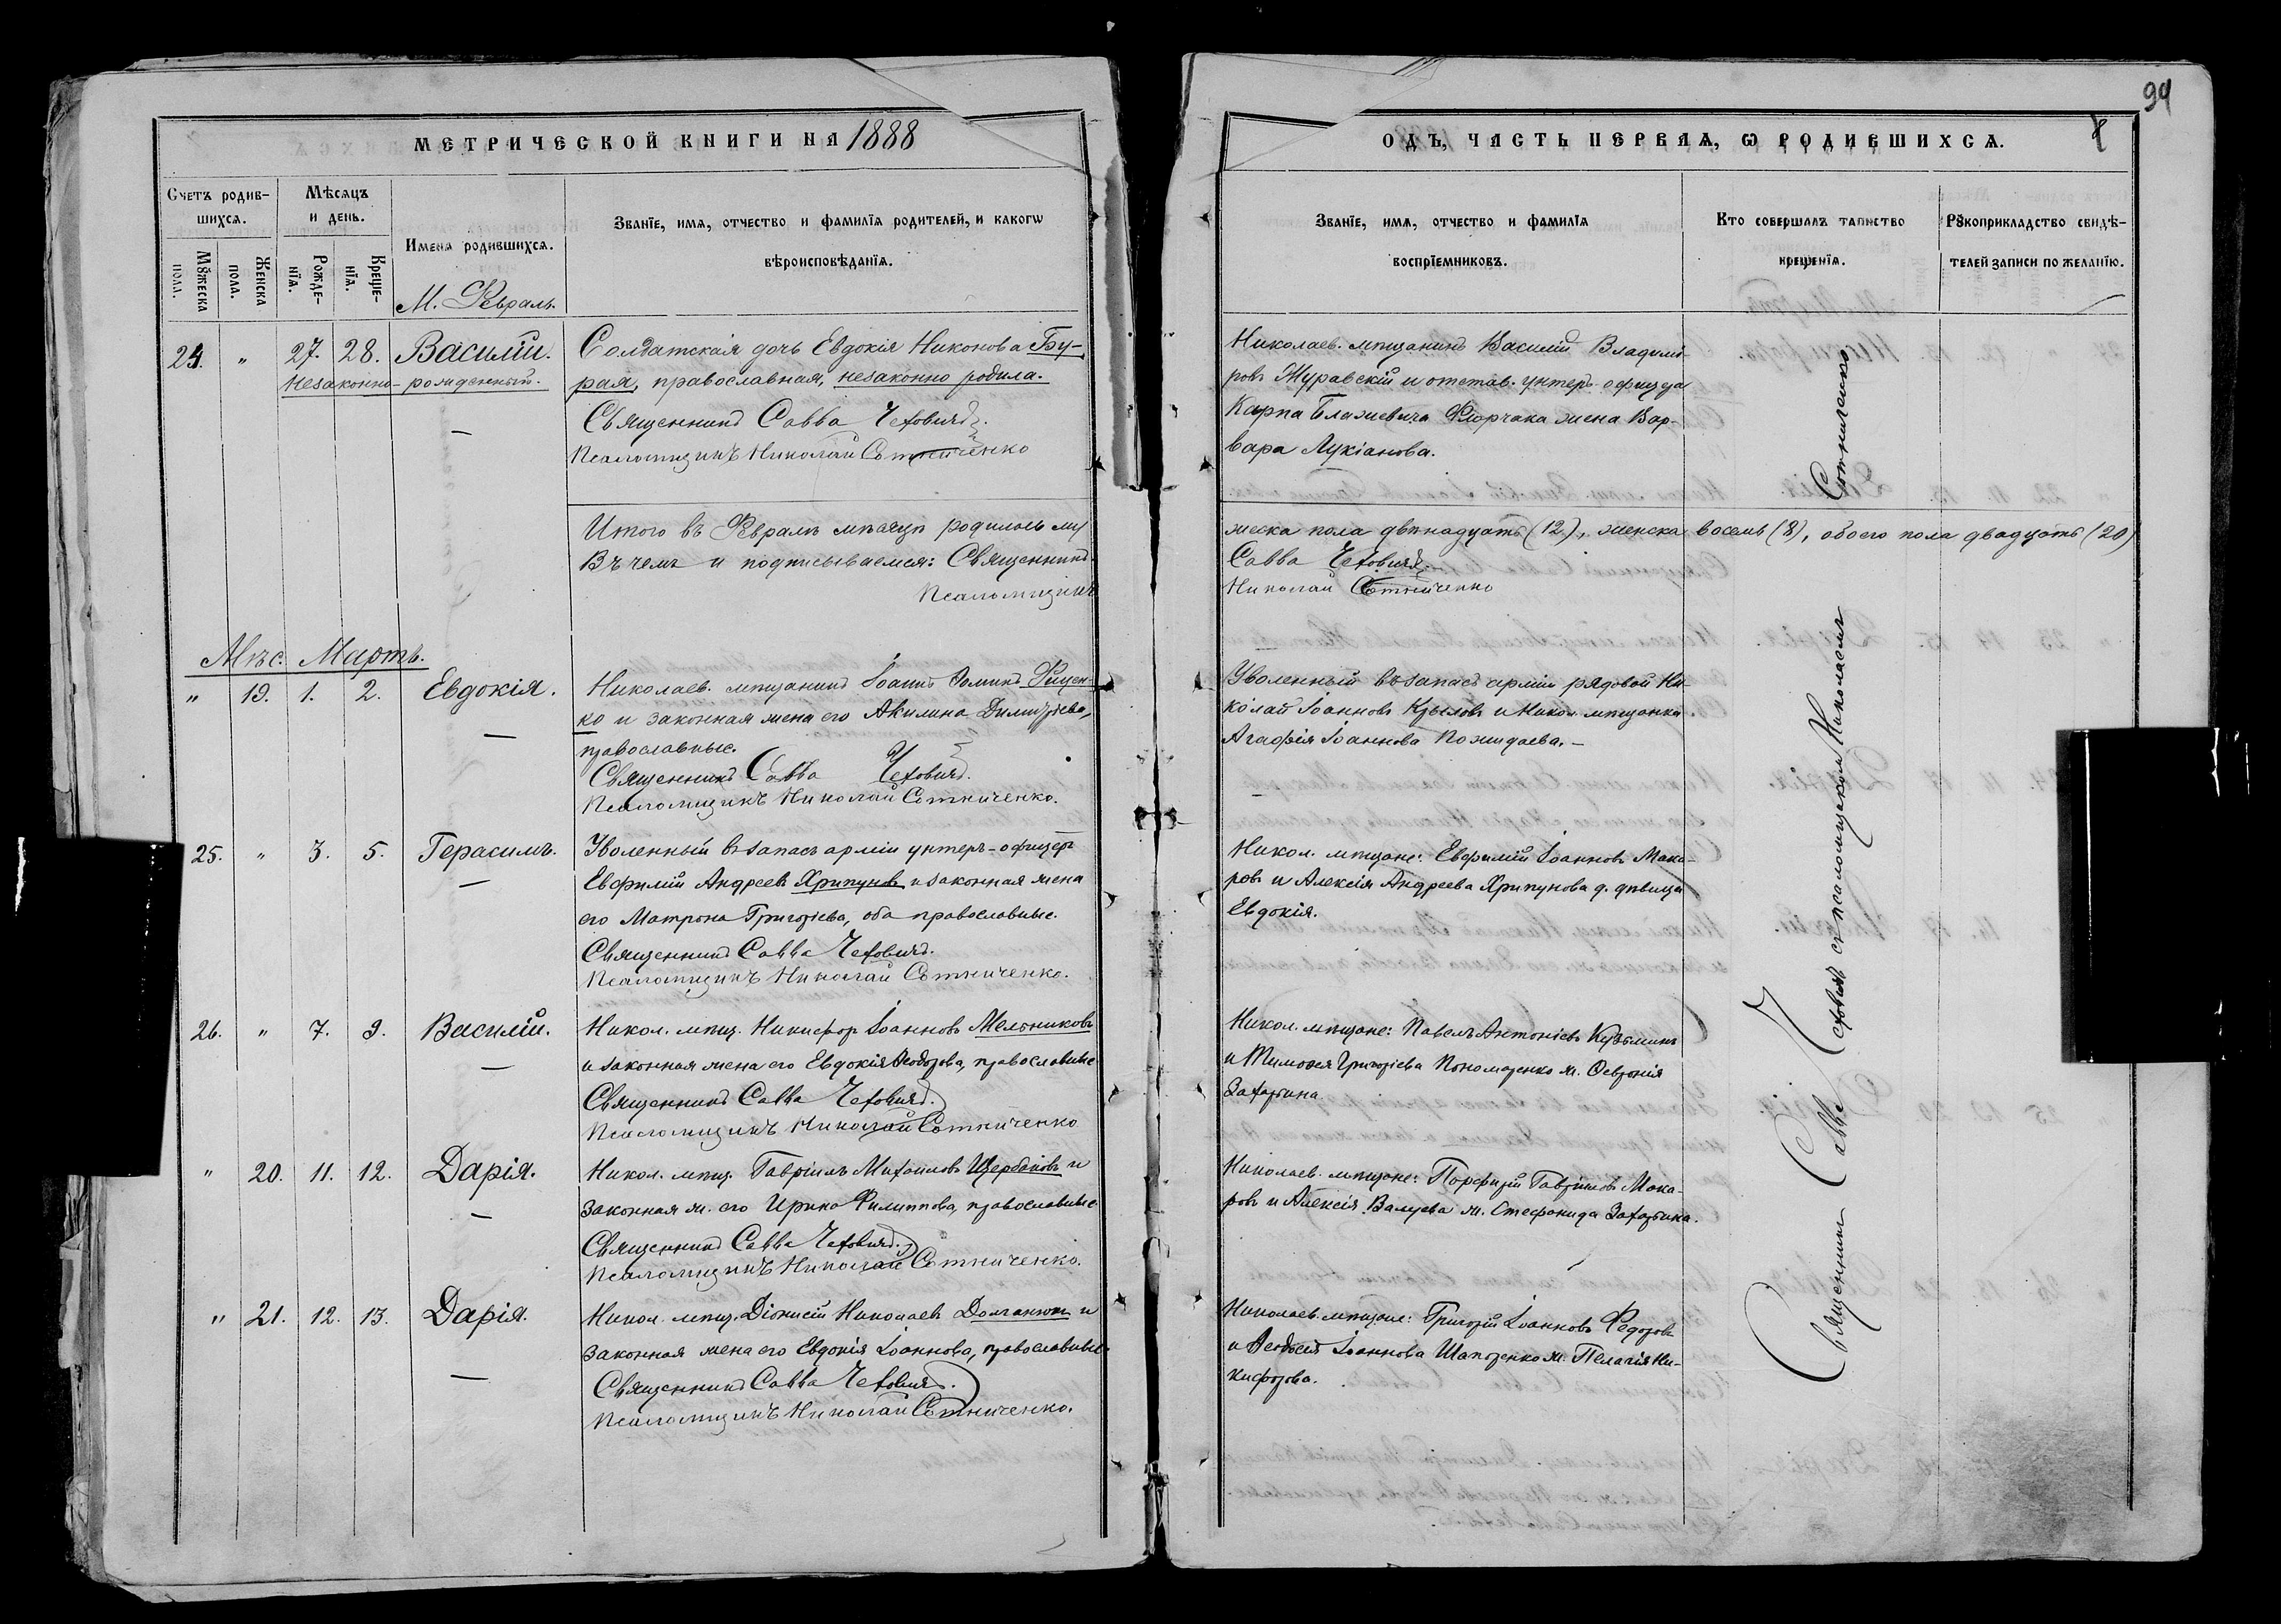 94
8
МЕТРИЧЕСКОЙ КНИГИ НА 1888
ОДЪ, ЧАСТЬ ПЕРВАѦ, Ѡ РОДИВШИХСѦ.
Счетъ родив-
шихсѧ.
Мꙋжеска
пола.
Женска
пола.
Мѣсѧцъ
и день.
Рожде-
нїѧ.
Креще-
нїѧ.
Имена родившихсѧ.
М. Февраль.
Званїе, имѧ, отчество и фамилїѧ родителей, и какогѡ
вѣроисповѣданїѧ.
Званїе, имѧ, отчество и фамилїѧ
воспрїемниковъ.
Кто совершалъ таинство
крещенїѧ.
Рꙋкоприкладство свидѣ-
телей записи по желанїю.
24. " 27. 28. Василій.
Незаконно-рожденный.
Солдатская дочь Евдокія Никонова Бу-
рая, православная, незаконно родила.
Священникъ Савва Чеховичъ.
Псаломщикъ Николай Сотниченко
Николаев. мѣщанинъ Василій Владимі-
ровъ Журавскій и отстав. унтеръ-офицера
Карпа Блажиевича Флорчака жена Вар-
вара Лукіанова.
Итого въ Февралѣ мѣсяцѣ родилось му
жеска пола двѣнадцать (12), женска восемь (8), обоего пола двадцать (20)
Въ чемъ и подписываемся: Священникъ
Савва Чеховичъ.
Псаломщикъ
Николай Сотниченко
Мѣс. Мартъ.
" 19. 1. 2. Евдокія.
Николаев. мѣщанинъ Іоаннъ Фоминъ Фищен-
ко и законная жена его Акилина Димитріева,
православные.
Священникъ Савва Чеховичъ.
Псаломщикъ Николай Сотниченко.
Уволенный въ запасъ арміи рядовой Ни-
колай Іоанновъ Крыловъ и Никол. мѣщанка
Агафія Іоаннова Пожидаева.
25. " 3. 5. Герасимъ.
Уволенный въ запасъ арміи унтеръ-офицеръ
Евфимій Андреевъ Хрипуновъ и законная жена
его Матрона Григоріева, оба православные.
Священникъ Савва Чеховичъ.
Псаломщикъ Николай Сотниченко.
Никол. мѣщане: Евфимій Іоанновъ Мака-
ровъ и Алексія Андреева Хрипунова д. дѣвица
Евдокія.
26. " 7. 9. Василій.
Никол. мѣщ. Никифоръ Іоанновъ Мельниковъ
и законная жена его Евдокія Ѳеодорова, православные
Священникъ Савва Чеховичъ.
Псаломщикъ Николай Сотниченко
Никол. мѣщане: Павелъ Антоніевъ Кузьминъ
и Тимоѳея Григоріева Пономаренко ж. Февронія
Захарьина
" 20. 11. 12. Дарія.
Никол. мѣщ. Гавріилъ Михаиловъ Щербаковъ и
законная ж. его Ирина Филиппова, православные
Священникъ Савва Чеховичъ.
Псаломщикъ Николай Сотниченко.
Николаев. мѣщане: Порфирій Гавріиловъ Мака-
ровъ и Алексія Валуева ж. Стефанида Захарьина.
" 21. 12. 13. Дарія.
Никол. мѣщ. Діонисій Николаевъ Долганюкъ и
законная жена его Евдокія Іоаннова, православные.
Священникъ Савва Чеховичъ.
Псаломщикъ Николай Сотниченко.
Николаев. мѣщане: Григорій Іоанновъ Федоровъ
и Ѳеодосія Іоаннова Шапоренко ж. Пелагія Ни-
кифорова.
Священникъ Савва Чеховичъ съ псаломщикомъ Николаемъ Сотниченко